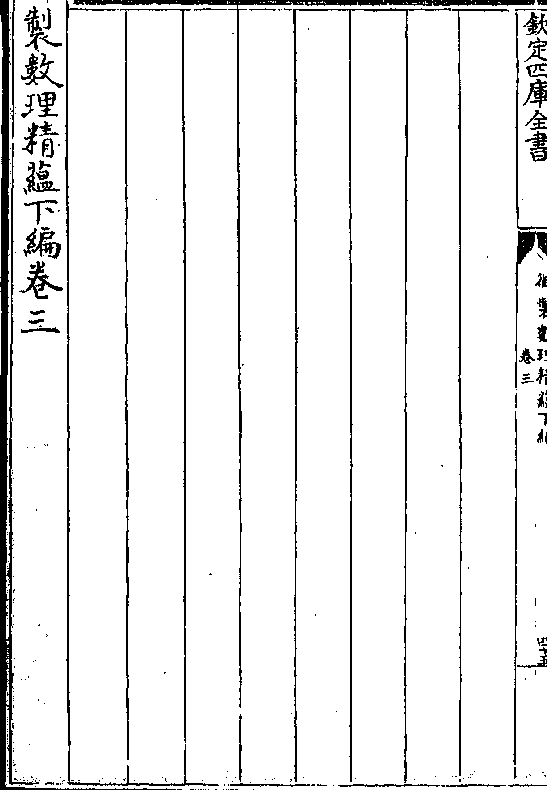 欽定四庫全書
御製數理精蘊下編
卷三
四十五
製數理精蘊下編卷三